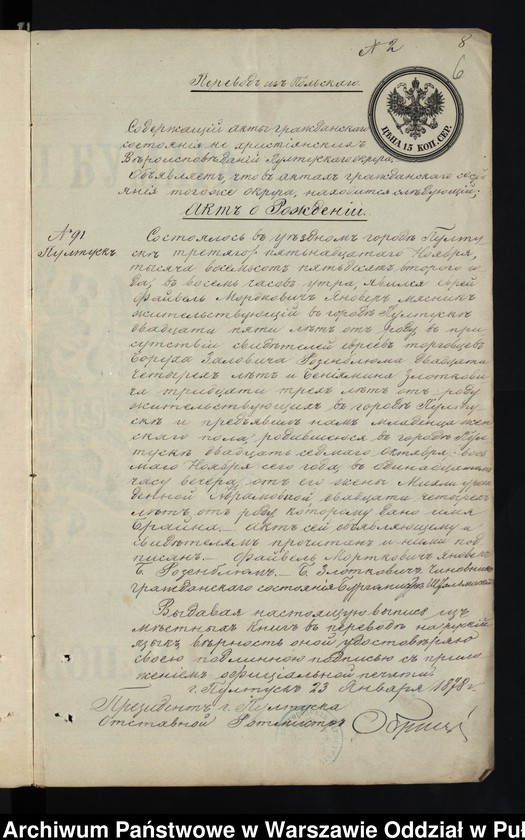 № 2
8
6
Переводъ изъ Польскаго.
ЦѢНА 15 КОП. СЕР.
Содержащій акты гражданскаго
состоянія не христіянскихъ
Вѣроисповѣданій Пултускаго округа,
Объявляетъ, что въ актахъ гражданскаго состо
янія того же округа, находится слѣдующій:
Актъ о Рожденіи.
№ 91
Пултускъ
Состоялось въ уѣздномъ городѣ Пулту
скѣ третяго/пятьнадцатаго Ноября,
тысяча восемьсотъ пятьдесятъ втораго го
да, въ восемь часовъ утра, явился еврей
Файвель Мордковичъ Яноверъ, мясникъ
жительствующій въ городѣ Пултускѣ
двадцати пяти лѣтъ отъ роду въ при
сутствіи свидѣтелей евреевъ торговцевъ
Боруха Заловича Розенблюма двадцати
четырехъ лѣтъ и Беніямина Злоткови
ча тридцати трехъ лѣтъ отъ роду
жительствующихъ въ городѣ Пулту
скѣ и предъявилъ намъ младенца жен
скаго пола, родившююся въ городѣ Пул
тускѣ двадцать седьмаго Октября/вось
маго Ноября сего года, въ одинадцатомъ
часу вечера, отъ его жены Маріи урож
денной Абрамовной двадцати четырехъ
лѣтъ отъ роду, которому дано имя
Фрайна. Актъ сей объявляющему и
свидѣтелямъ прочитанъ и ними под
писанъ. — Файвель Мортковичъ Яноверъ
Б. Розенблюмъ. — Б. Злотковичъ. Чиновникъ
гражданскаго состоянія Бургомистръ
Выдавая настоящую выпись изъ
мѣстныхъ книгъ въ переводѣ на русскій
языкъ вѣрность оной удостовѣряю
своею подлинною подписью съ прило
женіемъ официальной печати.
г. Пултускъ 23 Января 1878 г.
Президентъ г. Пултуска
Отставной Ротмистръ
Archiwum Państwowe w Warszawie Oddział w Puł